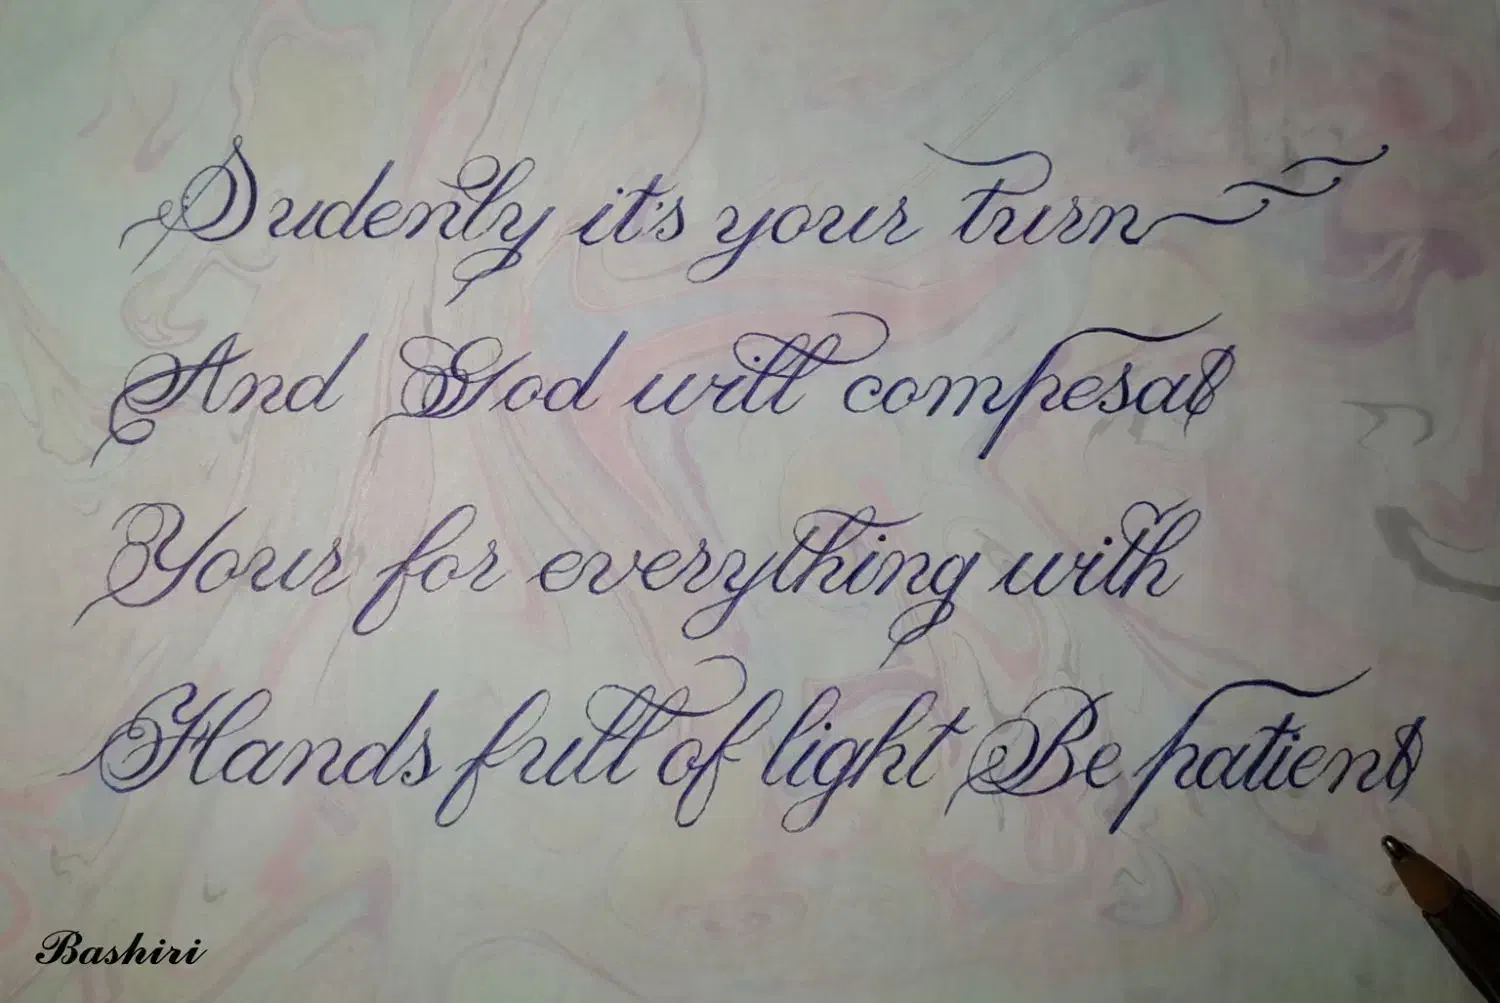 Sudenly it's your turn
And God will compesat
Your for everything with
Hands full of light Be patient
Bashiri